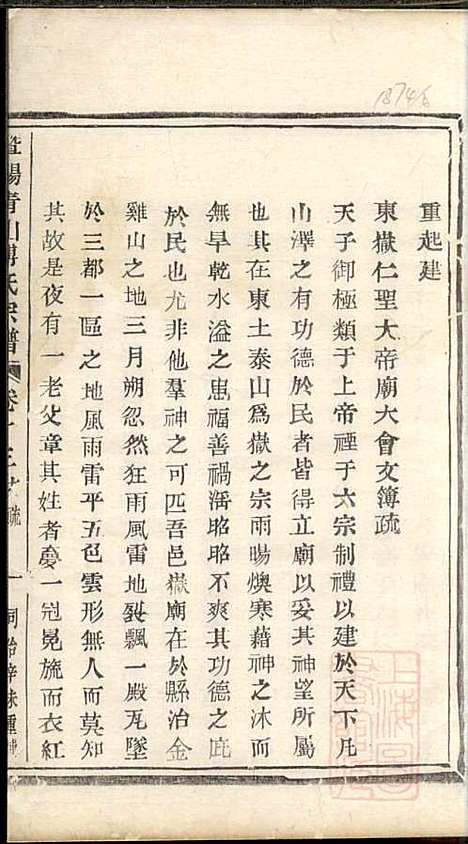 18746
重起建
東嶽仁聖大帝廟大會文簿疏
天子御極類于上帝禋于六宗制禮以建於天下凡
山澤之有功德於民者皆得立廟以妥其神望所屬
也其在東土泰山為嶽之宗雨暘燠寒藉神之沐而
無旱乾水溢之患福善禍淫昭昭不爽其功德之庇
於民也尤非他羣神之可匹吾邑嶽廟在於縣治金
雞山之地三月朔忽然狂雨風雷地裂飄一殿瓦墜
於三都一區之地風雨雷平五色雲形無人而莫知
其故是夜有一老父章其姓者夢一冠冕旒而衣紅
暨陽青山傅氏宗譜 卷十三 疏 一 同治辛未重